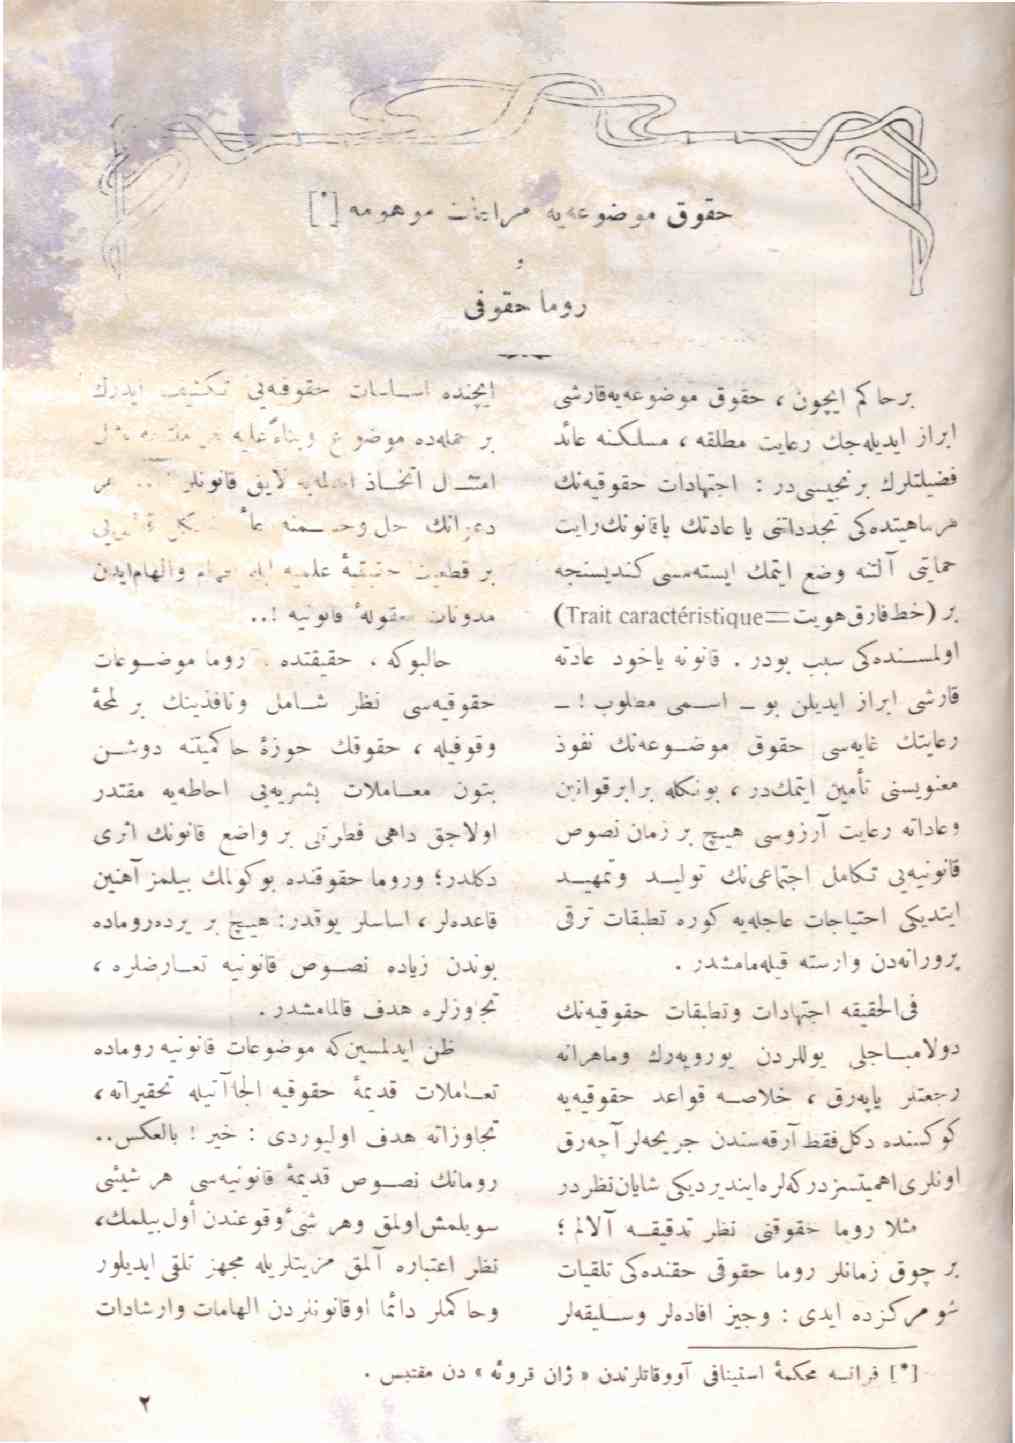 حقوق موضوعه‌یه مراعات موهومه [*]
و
روما حقوقی
بر حاكم ایچون ، حقوق موضوعه‌یه قارشی
ابراز ایدیله‌جك رعایت مطلقه ، مسلكنه عائد
فضیلتلرك برنجیسی‌در : اجتهادات حقوقیه‌نك
هر ماهیتده‌كی تجدداتنی یا عادتك یا قانونك رایت
حمایتی آلتنه وضع ایتمك ایسته‌مسی كندیسنجه
بر (خط فارق هویت=Trait caractéristique)
اولمسنده‌كی سبب بودر . قانونه یاخود عادته
قارشی ابراز ایدیلن بو ـ اسمی مطلوب ! ـ
رعایتك غایه‌سی حقوق موضوعه‌نك نفوذ
معنویسنی تأمین ایتمك‌در ، بونكله برابر قوانین
وعاداته رعایت آرزوسی هیچ بر زمان نصوص
قانونیه‌یی تكامل اجتماعی‌نك تولید وتمهید
ایتدیكی احتیاجات عاجله‌یه كوره تطبقات ترقی
پرورانه‌دن وارسته قیله‌مامشدر .
فی‌الحقیقه اجتهادات وتطبقات حقوقیه‌نك
دولامباجلی یوللردن یورویه‌رك وماهرانه
رجعتلر یاپه‌رق ، خلاصه قواعد حقوقیه‌یه
كوكسنده دكل فقط آرقه‌سندن جریحه‌لر آچه‌رق
اونلری اهمیتسز دركه‌لره ایندیردیكی شایان نظر در
مثلا روما حقوقنی نظر تدقیقه آلالم ؛
بر چوق زمانلر روما حقوقی حقنده‌كی تلقیات
شو مركزده ایدی : وجیز افاده‌لر وسلیقه‌لر
ایچنده اساسات حقوقیه‌یی تكثیف ایدرك
بر جمله‌ده موضوع وبناءً علیه هر
امتثال اتخاذ ایدلمه‌یه لایق قانونلر هر
دعوانك حل وحسمنه
بر قطعیت حقیقیهٔ علمیه ایله والهام ایدن
مدونات معقولهٔ قانونیه !..
حالبوكه ، حقیقتده روما موضوعات
حقوقیه‌سی نظر شامل ونافذینك بر لمحهٔ
وقوفیله ، حقوقك حوزهٔ حاكمیتنه دوشن
بتون معاملات بشریه‌یی احاطه‌یه مقتدر
اولاجق داهی فطرتلی بر واضع قانونك اثری
دكلدر؛ وروما حقوقنده بوكولمك بیلمز آهنین
قاعده‌لر ، اساسلر یوقدر: هیچ بر یرده روماده
بوندن زیاده نصوص قانونیه تعارضلره ،
تجاوزلره هدف قالمامشدر .
ظن ایدلمسین‌كه موضوعات قانونیه روماده
تعاملات قدیمهٔ حقوقیه الجاآتیله تحقیراته ،
تجاوزاته هدف اولیوردی : خیر ! بالعكس..
رومانك نصوص قدیمهٔ قانونیه‌سی هر شیئی
سویلمش اولمق وهر شیٔ وقوعندن أول بیلمك ،
نظر اعتباره آلمق مزیتلریله مجهز تلقی ایدیلور
وحاكملر دائما اوقانونلردن الهامات وارشادات
[*] فرانسه محكمهٔ استینافی آووقاتلرندن « ژان قروئه » دن مقتبس .
٢